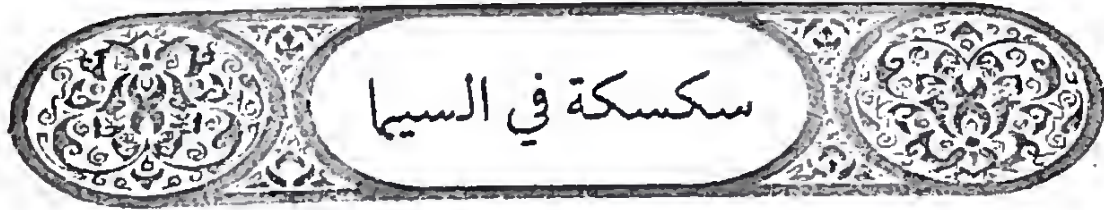 سكسكة في السيما